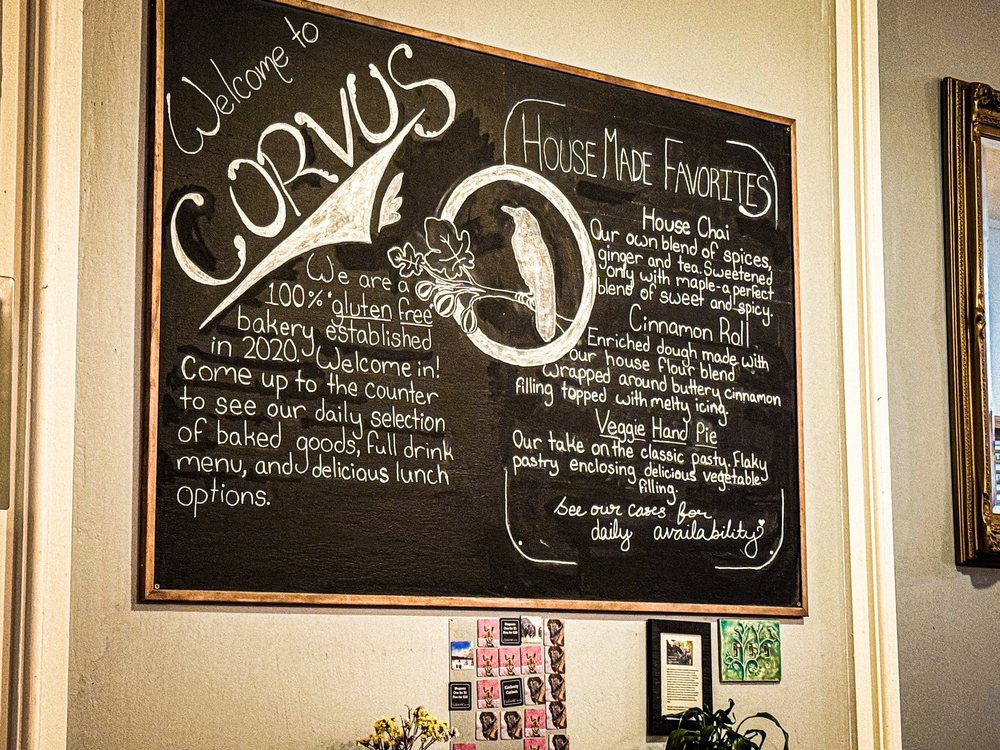 Welcome to
CORVUS
We are a
100% gluten free
bakery established
in 2020. Welcome in!
Come up to the counter
to see our daily selection
of baked goods, full drink
menu, and delicious lunch
options.
HOUSE MADE FAVORITES
House Chai
Our own blend of spices,
ginger and tea. Sweetened
only with maple-a perfect
blend of sweet and spicy.
Cinnamon Roll
Enriched dough made with
our house flour blend
wrapped around buttery cinnamon
filling topped with melty icing.
Veggie Hand Pie
Our take on the classic pasty. Flaky
pastry enclosing delicious vegetable
filling.
See our cases for
daily availability